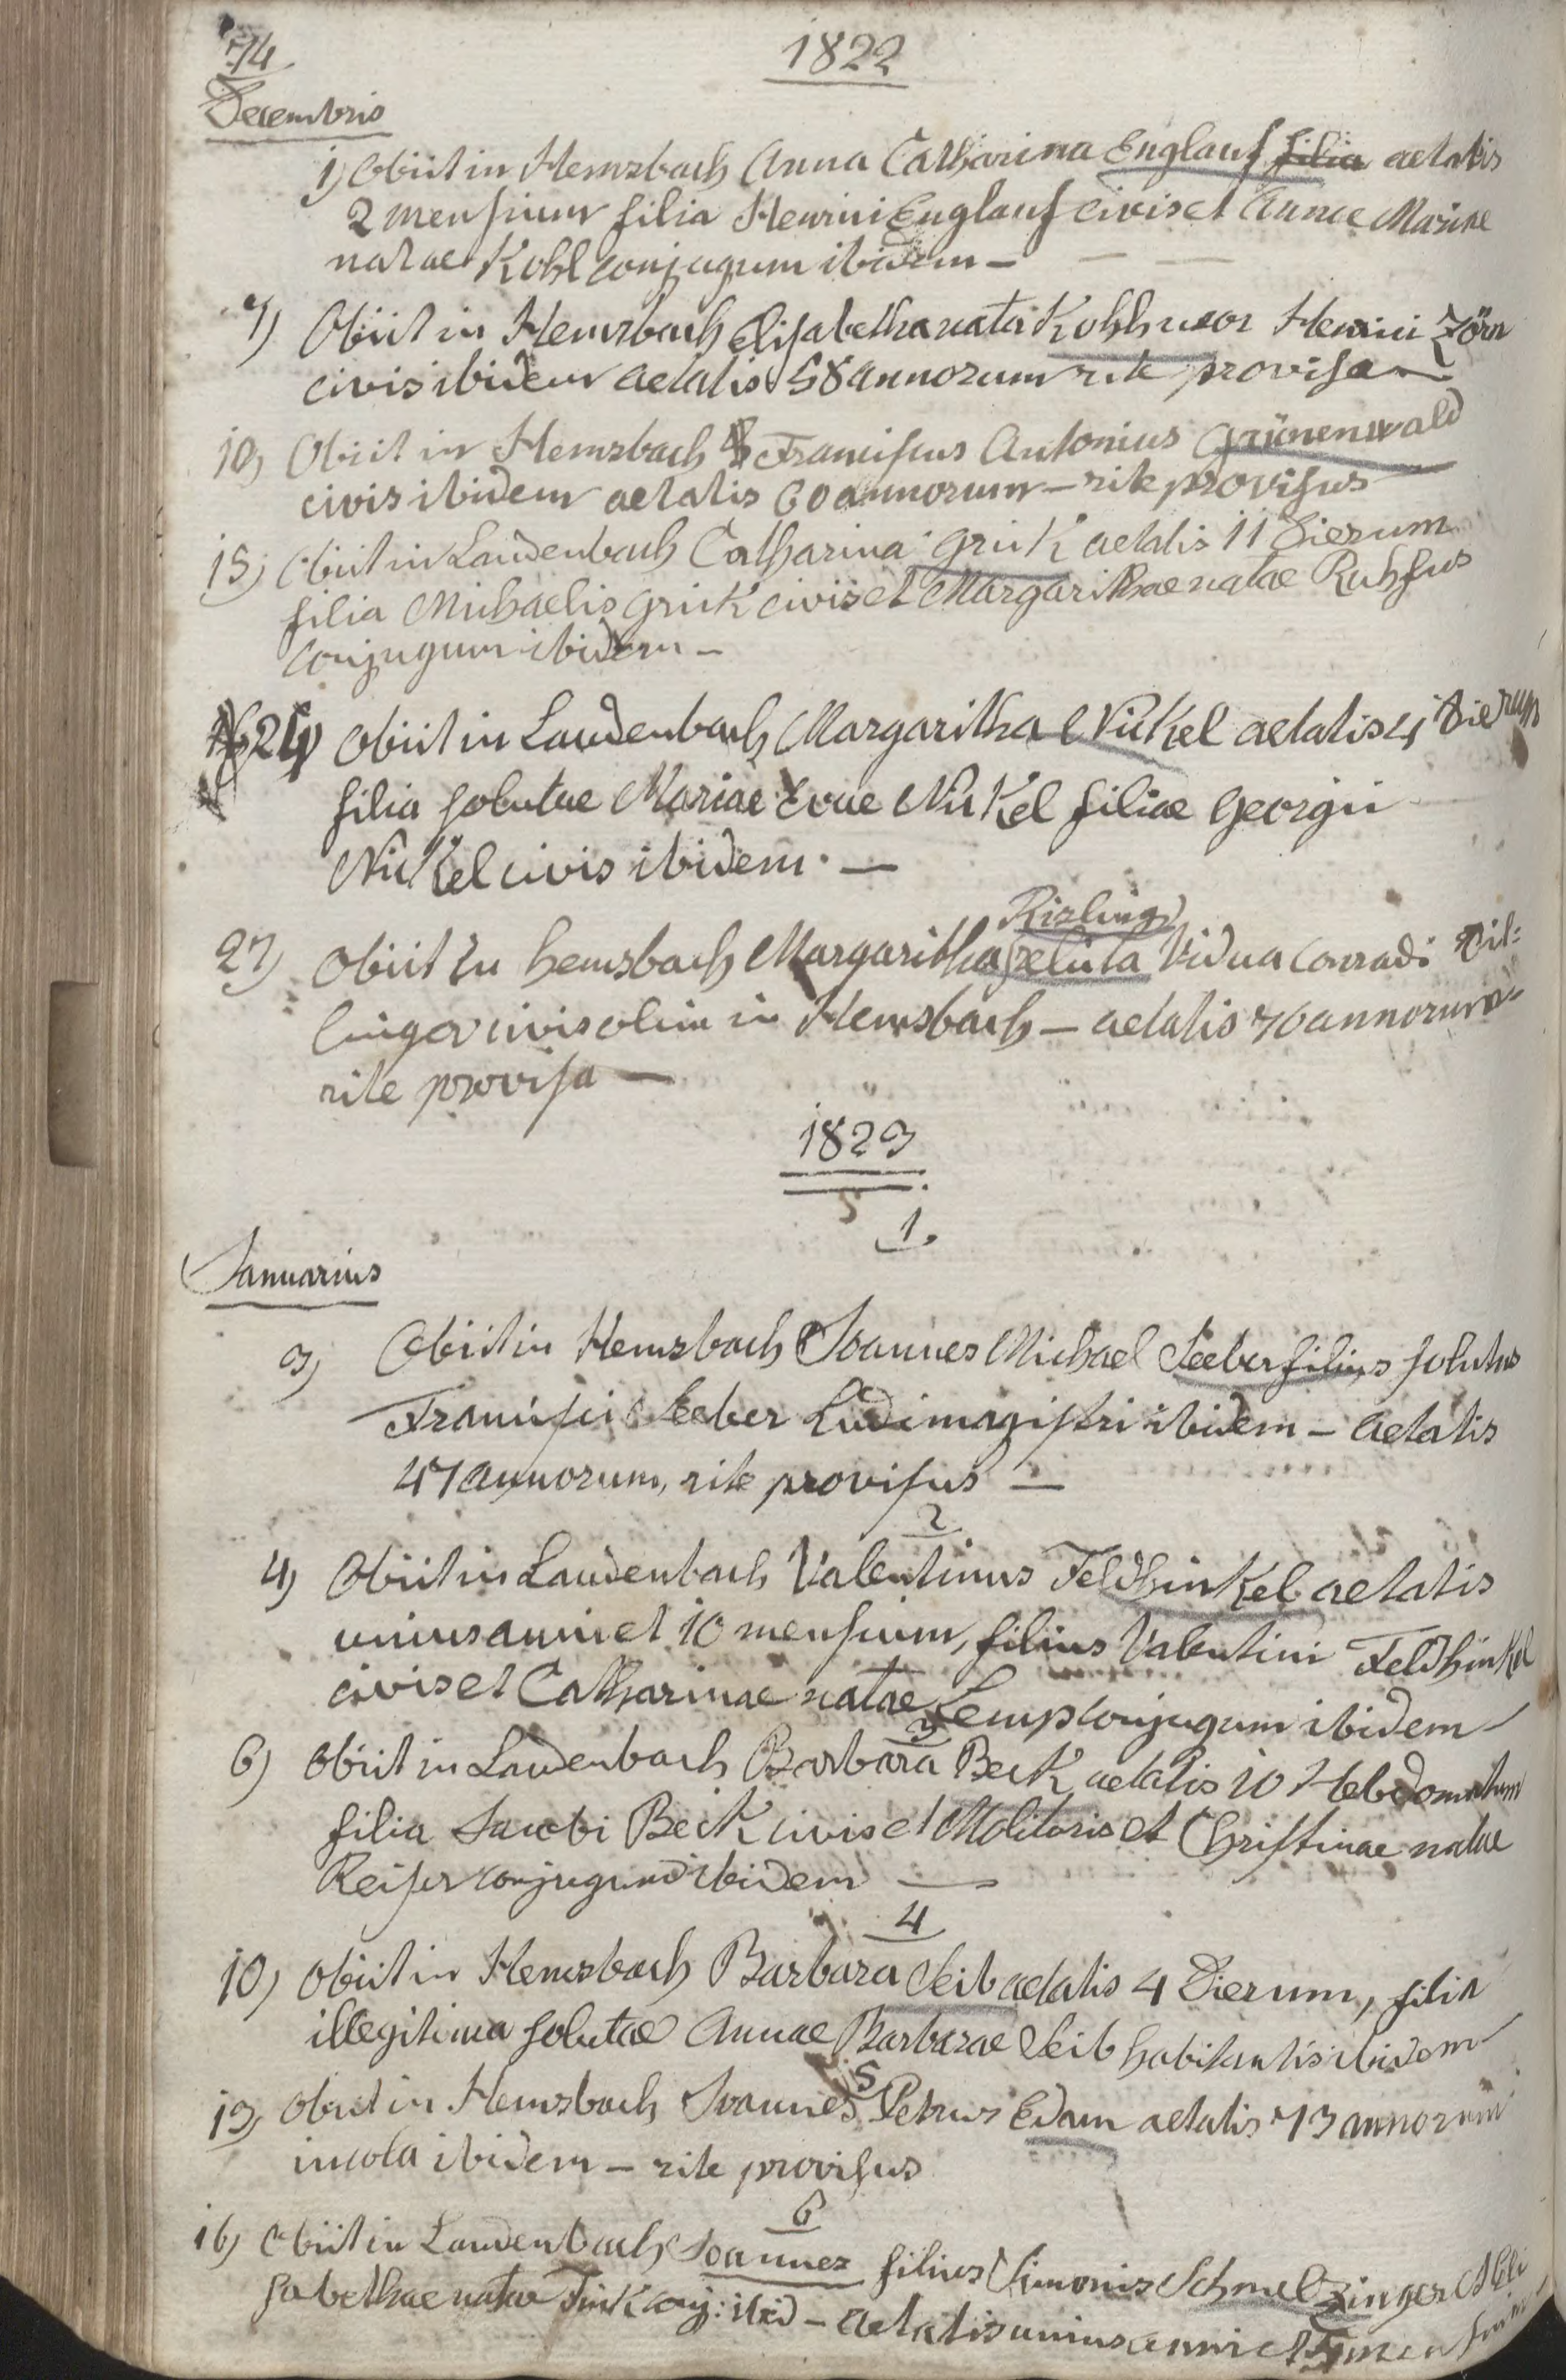 74
1822
Decembris
1) Obiit in Hemsbach Anna Catharina Englauf filia aetatis
2 mensium filia Henrici Englauf civis et Annae Mariae
natae Kohl conjugum ibidem –
7) Obiit in Hemsbach Elisabetha nata Kohl uxor Henrici Zörn
civis ibidem aetatis 58 annorum rite provisa –
10) Obiit in Hemsbach Franciscus Antonius Grünenwald
civis ibidem aetatis 60 annorum – rite provisus
15) Obiit in Laudenbach Catharina Grück aetatis 11 dierum
filia Michaelis Grück civis et Margarithae natae Ruhfus
conjugum ibidem –
24) Obiit in Laudenbach Margaritha Nickel aetatis 4 dierum
filia solutae Mariae Evae Nickel filiae Georgii
Nickel civis ibidem. —
Rizling
27) Obiit zu Hemsbach Margaritha relicta vidua Conradi
civis olim in Hemsbach – aetatis 70 annorum
rite provisa —
1823
1.
Januarius
3) Obiit in Hemsbach Joannes Michael Seeber filius solutus
Francisci Seeber Ludimagistri ibidem – aetatis
47 annorum, rite provisus —
2
4) Obiit in Laudenbach Valentinus Feldhinkel aetatis
unius anni et 10 mensium, filius Valentini Feldhinkel
civis et Catharinae natae Lemp conjugum ibidem
3
6) Obiit in Laudenbach Barbara Beck aetatis 10 Hebdomatum
filia Jacobi Beck civis et Molitoris et Christinae natae
Reiser conjugum ibidem —
4
10) Obiit in Hemsbach Barbara Seib aetatis 4 Dierum, filia
illegitima solutae Annae Barbarae Seib habitantis ibidem
5
13) Obiit in Hemsbach Joannes Petrus Edam aetatis 73 annorum
incola ibidem – rite provisus
6
16) Obiit in Laudenbach Joannes filius Simonis Schmelzinger et Eli
sabethae natae Fink conj: ibid – aetatis unius anni et